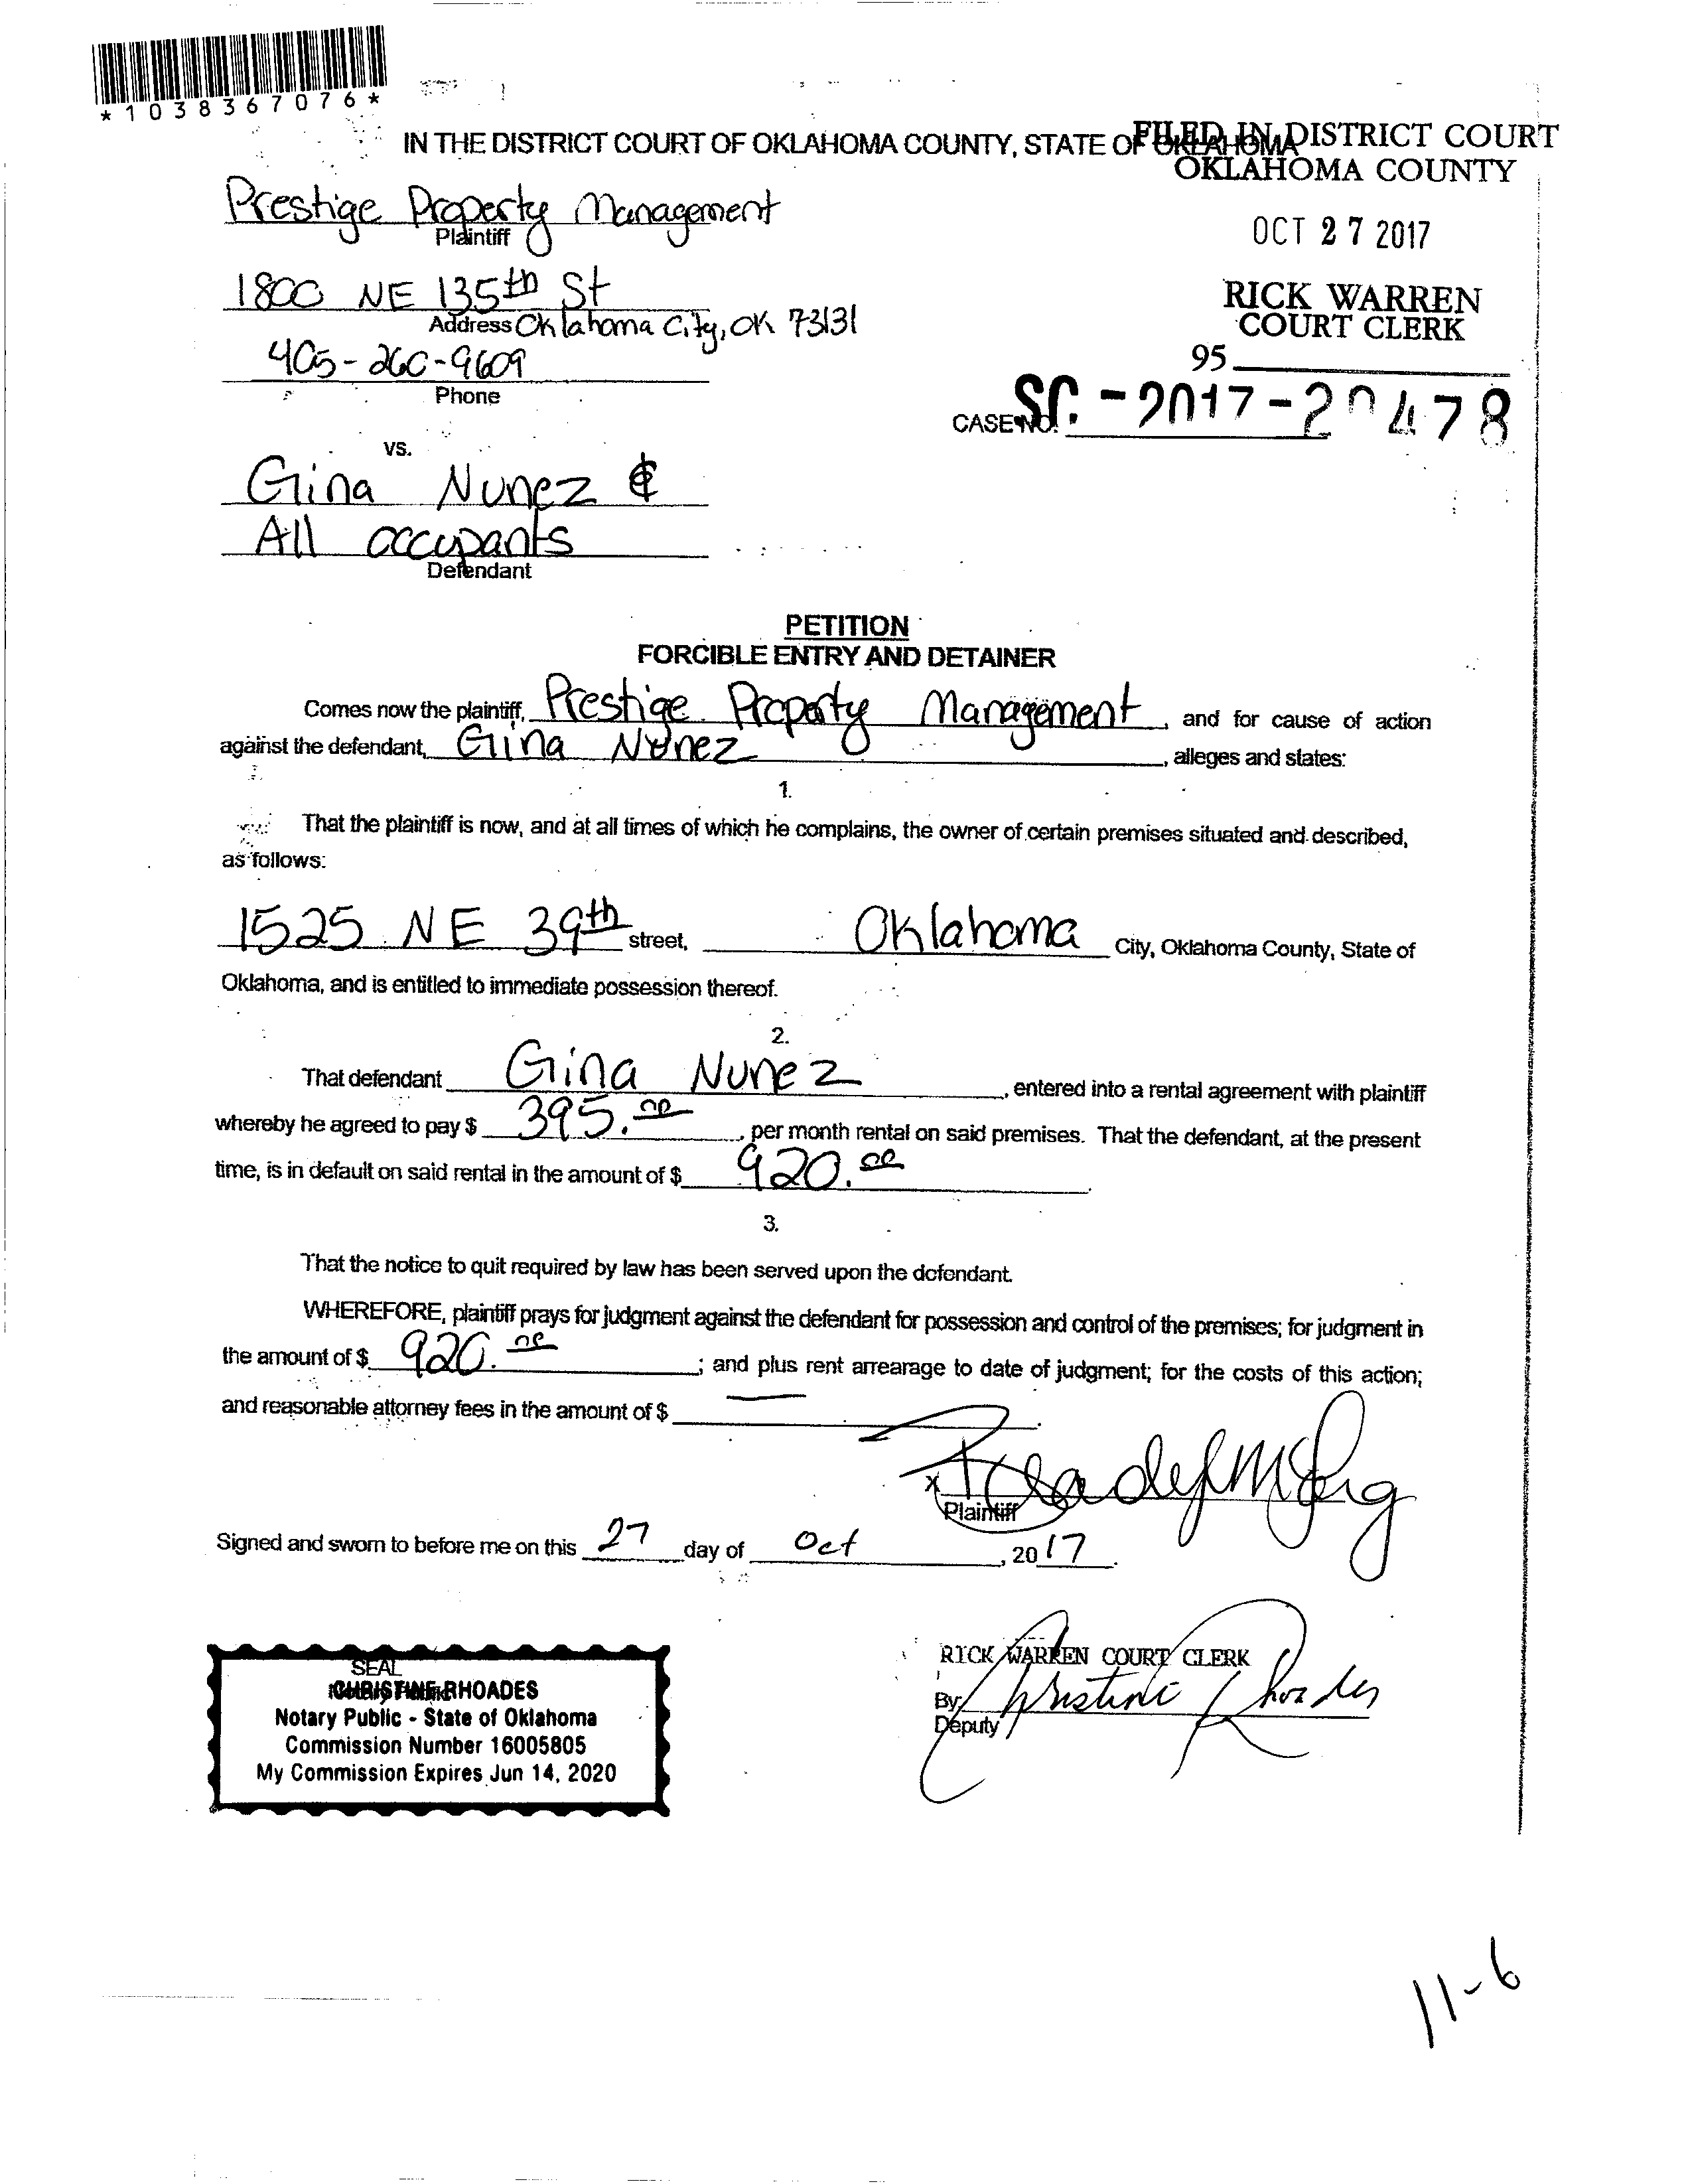 *1038367076*
IN THE DISTRICT COURT OF OKLAHOMA COUNTY, STATE OF OKLAHOMA
FILED IN DISTRICT COURT
OKLAHOMA COUNTY
Prestige Property Management
Plaintiff
OCT 27 2017
1800 NE 135th St
Address Oklahoma City, OK 73131
RICK WARREN
COURT CLERK
405-260-9609
Phone
95
CASE NO. SC-2017-20478
vs.
Gina Nunez &
All occupants
Defendant
PETITION
FORCIBLE ENTRY AND DETAINER
Comes now the plaintiff, Prestige Property Management, and for cause of action
against the defendant, Gina Nunez, alleges and states:
1.
That the plaintiff is now, and at all times of which he complains, the owner of certain premises situated and described,
as follows:
1525 NE 39th street, Oklahoma City, Oklahoma County, State of
Oklahoma, and is entitled to immediate possession thereof.
2.
That defendant Gina Nunez, entered into a rental agreement with plaintiff
whereby he agreed to pay $ 395.00, per month rental on said premises. That the defendant, at the present
time, is in default on said rental in the amount of $ 920.00.
3.
That the notice to quit required by law has been served upon the defendant.
WHEREFORE, plaintiff prays for judgment against the defendant for possession and control of the premises; for judgment in
the amount of $ 920.00; and plus rent arrearage to date of judgment; for the costs of this action;
and reasonable attorney fees in the amount of $ —.
x
Plaintiff
Signed and sworn to before me on this 27 day of Oct, 2017.
SEAL
CHRISTINE RHOADES
Notary Public - State of Oklahoma
Commission Number 16005805
My Commission Expires Jun 14, 2020
RICK WARREN COURT CLERK
By Christine Rhoades
Deputy
11-6